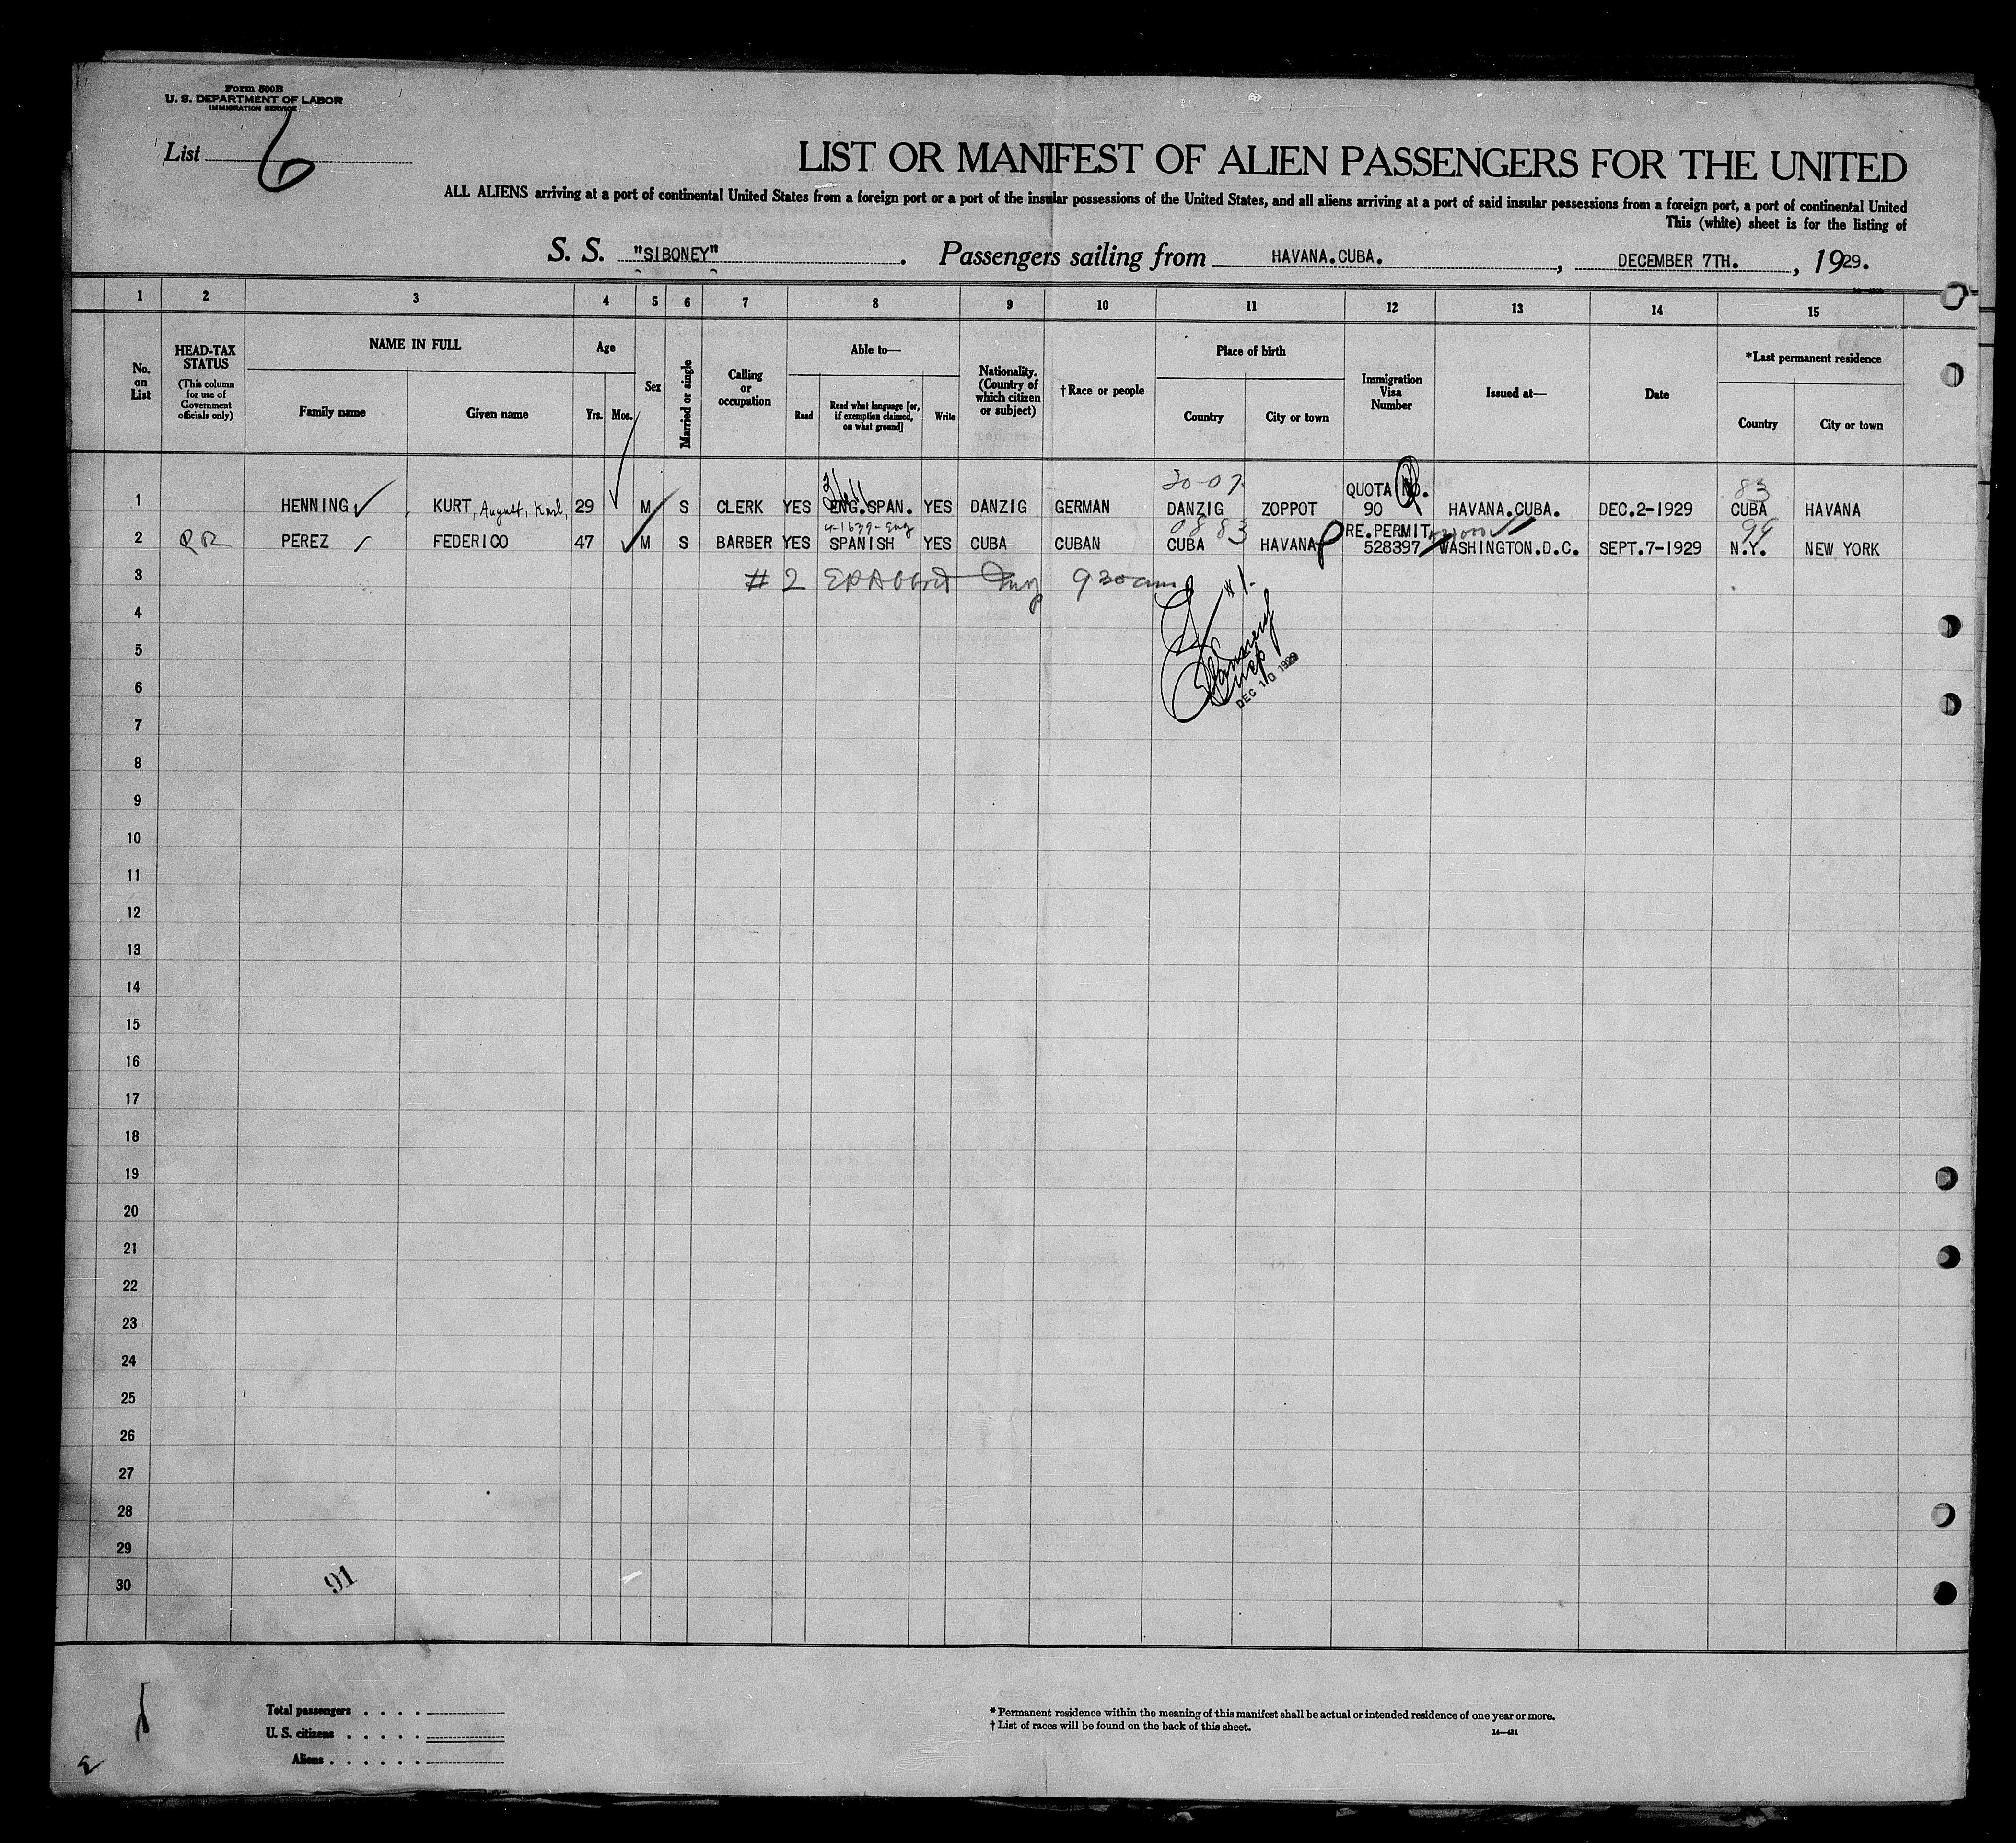 Form 500B
U. S. DEPARTMENT OF LABOR
IMMIGRATION SERVICE
List 6
LIST OR MANIFEST OF ALIEN PASSENGERS FOR THE UNITED
ALL ALIENS arriving at a port of continental United States from a foreign port or a port of the insular possessions of the United States, and all aliens arriving at a port of said insular possessions from a foreign port, a port of continental United
This (white) sheet is for the listing of
S. S. "SIBONEY". Passengers sailing from HAVANA.CUBA., DECEMBER 7TH., 1929.
1 2 3 4 5 6 7 8 9 10 11 12 13 14 15
No. on List
HEAD-TAX STATUS
(This column for use of Government officials only)
NAME IN FULL
Family name
Given name
Age
Yrs. Mos.
Sex
Married or single
Calling or occupation
Able to—
Read
Read what language [or, if exemption claimed, on what ground]
Write
Nationality. (Country of which citizen or subject)
†Race or people
Place of birth
Country
City or town
Immigration Visa Number
Issued at—
Date
*Last permanent residence
Country
City or town
20-07 83
QUOTA NO.
1 HENNING KURT, August, Karl, 29 M S CLERK YES ENG.SPAN. YES DANZIG GERMAN DANZIG ZOPPOT 90 HAVANA.CUBA. DEC.2-1929 CUBA HAVANA
4-1639-Eng 0883 RE.PERMIT 99
2 PEREZ FEDERICO 47 M S BARBER YES SPANISH YES CUBA CUBAN CUBA HAVANA 528397 WASHINGTON.D.C. SEPT.7-1929 N.Y. NEW YORK
3 #2 930am
#1-
4
5
6 DEC 10 1929
7
8
9
10
11
12
13
14
15
16
17
18
19
20
21
22
23
24
25
26
27
28
29
30 91
Total passengers . . . .
U. S. citizens . . . . .
Aliens . . . . . .
* Permanent residence within the meaning of this manifest shall be actual or intended residence of one year or more.
† List of races will be found on the back of this sheet.
14—421